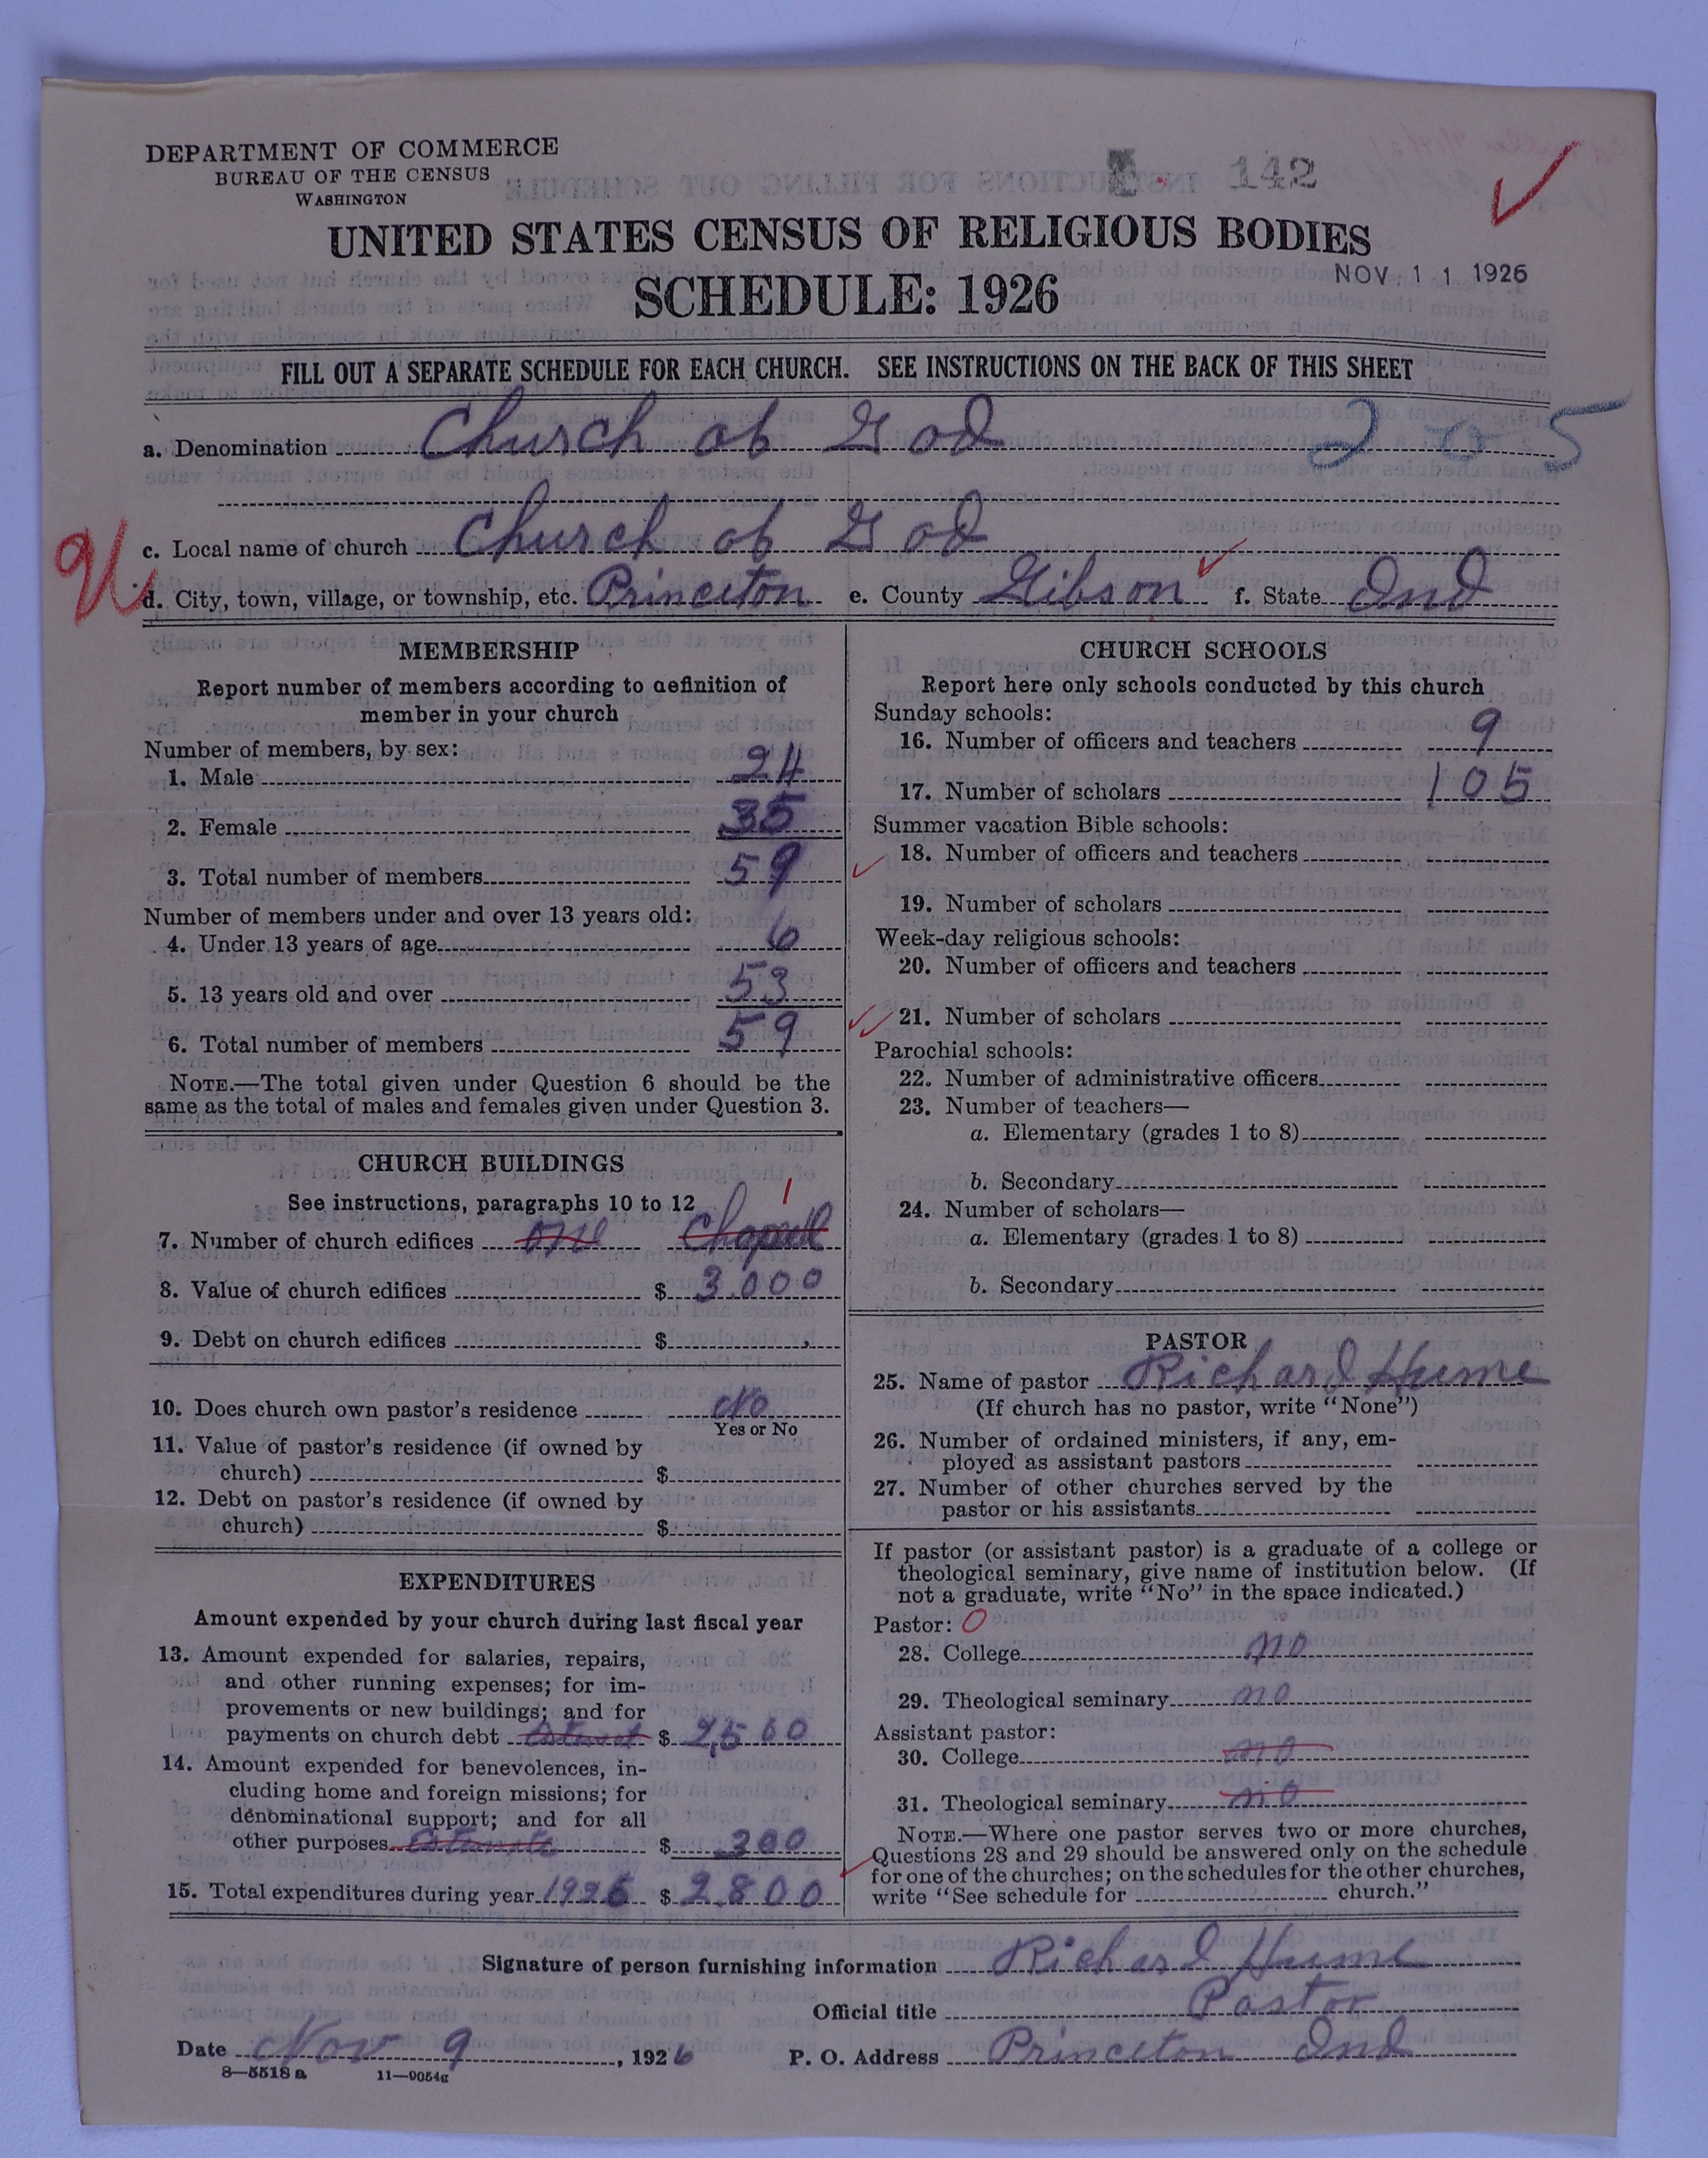 DEPARTMENT OF COMMERCE
BUREAU OF THE CENSUS
WASHINGTON
142
UNITED STATES CENSUS OF RELIGIOUS BODIES
SCHEDULE: 1926
NOV 11 1926
FILL OUT A SEPARATE SCHEDULE FOR EACH CHURCH. SEE INSTRUCTIONS ON THE BACK OF THIS SHEET
a. Denomination Church of God
c. Local name of church Church of God
d. City, town, village, or township, etc. Princeton e. County Gibson f. State Ind
MEMBERSHIP
Report number of members according to definition of
member in your church
Number of members, by sex:
1. Male 24
2. Female 35
3. Total number of members 59
Number of members under and over 13 years old:
4. Under 13 years of age 6
5. 13 years old and over 53
6. Total number of members 59
NOTE.—The total given under Question 6 should be the
same as the total of males and females given under Question 3.
CHURCH BUILDINGS
See instructions, paragraphs 10 to 12
1
7. Number of church edifices one Chapell
8. Value of church edifices $ 3000
9. Debt on church edifices $
10. Does church own pastor's residence No
Yes or No
11. Value of pastor's residence (if owned by
church) $
12. Debt on pastor's residence (if owned by
church) $
EXPENDITURES
Amount expended by your church during last fiscal year
13. Amount expended for salaries, repairs,
and other running expenses; for im-
provements or new buildings; and for
payments on church debt $ 2,500
14. Amount expended for benevolences, in-
cluding home and foreign missions; for
denominational support; and for all
other purposes Estimate $ 300
15. Total expenditures during year 1926 $ 2800
CHURCH SCHOOLS
Report here only schools conducted by this church
Sunday schools:
16. Number of officers and teachers 9
17. Number of scholars 105
Summer vacation Bible schools:
18. Number of officers and teachers
19. Number of scholars
Week-day religious schools:
20. Number of officers and teachers
21. Number of scholars
Parochial schools:
22. Number of administrative officers
23. Number of teachers—
a. Elementary (grades 1 to 8)
b. Secondary
24. Number of scholars—
a. Elementary (grades 1 to 8)
b. Secondary
PASTOR
25. Name of pastor Richard Hume
(If church has no pastor, write "None")
26. Number of ordained ministers, if any, em-
ployed as assistant pastors
27. Number of other churches served by the
pastor or his assistants
If pastor (or assistant pastor) is a graduate of a college or
theological seminary, give name of institution below. (If
not a graduate, write "No" in the space indicated.)
Pastor: 0
28. College no
29. Theological seminary no
Assistant pastor:
30. College no
31. Theological seminary no
NOTE.—Where one pastor serves two or more churches,
Questions 28 and 29 should be answered only on the schedule
for one of the churches; on the schedules for the other churches,
write "See schedule for church."
Signature of person furnishing information Richard Hume
Official title Pastor
Date Nov 9, 1926 P. O. Address Princeton Ind
8—5518 a 11—9054g